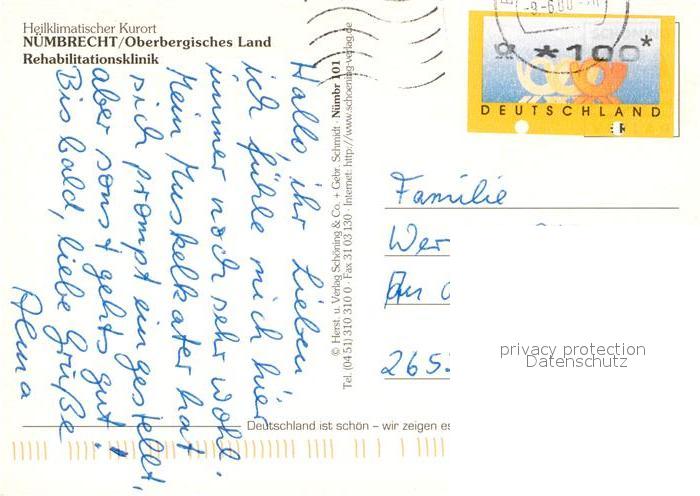 Heilklimatischer Kurort
NÜMBRECHT/Oberbergisches Land
Rehabilitationsklinik
Hallo, ihr Lieben
ich fühle mich hier
immer noch sehr wohl.
Mein Muskelkater hat
sich prompt eingestellt,
aber sonst gehts gut!
Bis bald, liebe Grüße
Alma
© Herst. u. Verlag Schöning & Co. + Gebr. Schmidt · Nümbr 101
Tel. (04 51) 310 310 0 · Fax 31 03 130 · Internet: http://www.schoening-verlag.de
*100*
DEUTSCHLAND
Familie
Wer
265
privacy protection
Datenschutz
Deutschland ist schön – wir zeigen es